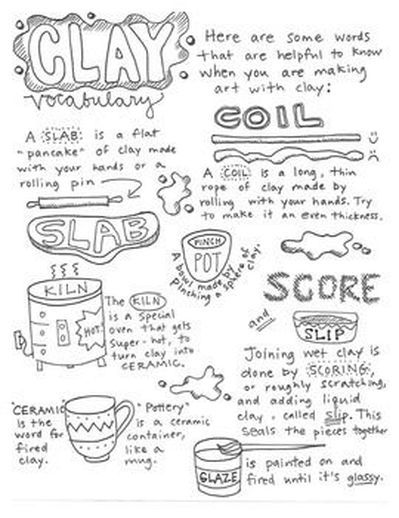 CLAY
vocabulary
Here are some words
that are helpful to know
when you are making
art with clay:
A SLAB is a flat
"pancake" of clay made
with your hands or a
rolling pin
SLAB
COIL
A COIL is a long, thin
rope of clay made by
rolling with your hands. Try
to make it an even thickness.
PINCH
POT
A bowl made by
pinching a sphere of clay.
KILN
HOT!
The KILN
is a special
oven that gets
super-hot, to
turn clay into
CERAMIC.
SCORE
and
SLIP
Joining wet clay is
done by SCORING,
or roughly scratching,
and adding liquid
clay, called slip. This
seals the pieces together
"CERAMIC"
is the
word for
fired
clay.
"Pottery"
is a ceramic
container,
like a
mug.
GLAZE
is painted on and
fired until it's glassy.